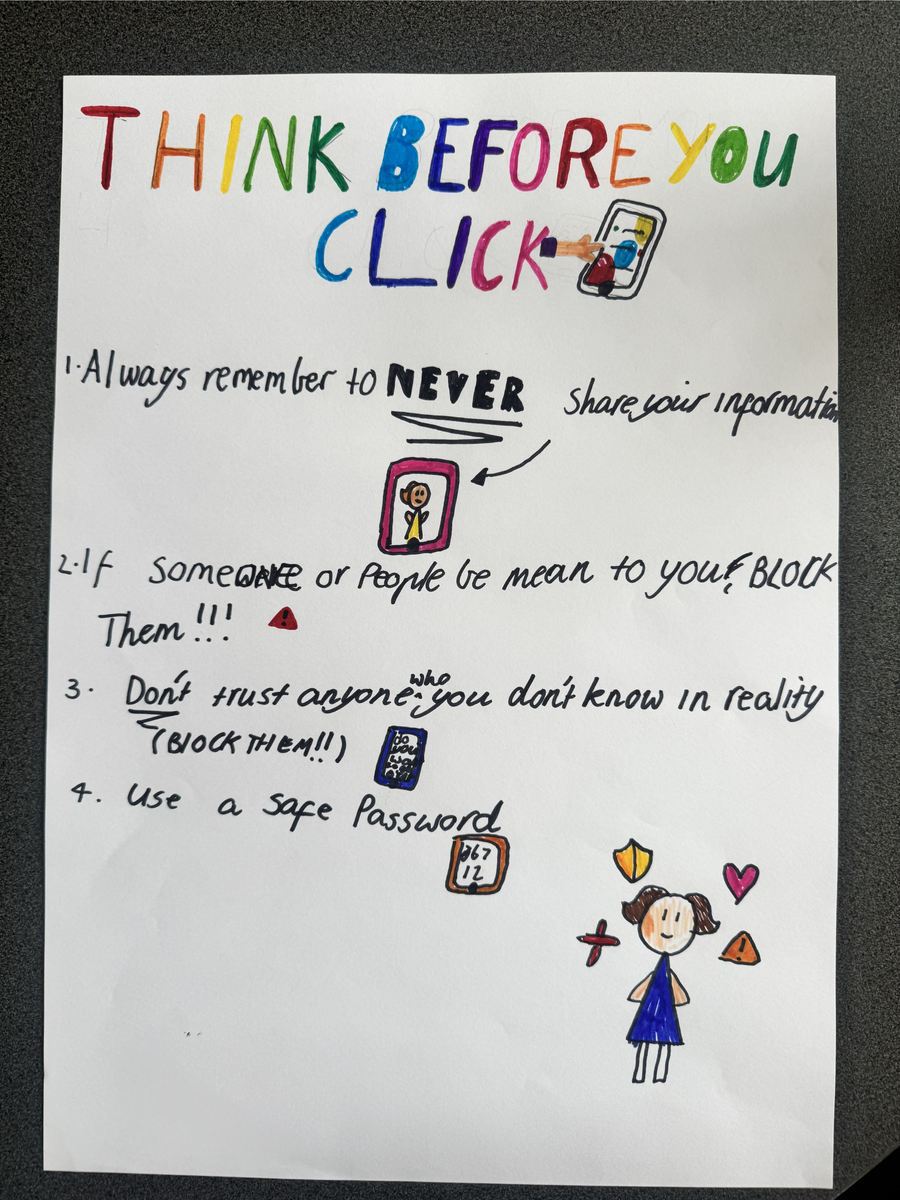 THINK BEFORE YOU
CLICK
1. Always remember to NEVER share your information
2. If someONE or People be mean to you? BLOCK
Them!!!
3. Don't trust anyone who you don't know in reality
(BLOCK THEM!!)
do
you
4. Use a safe Password
267
12